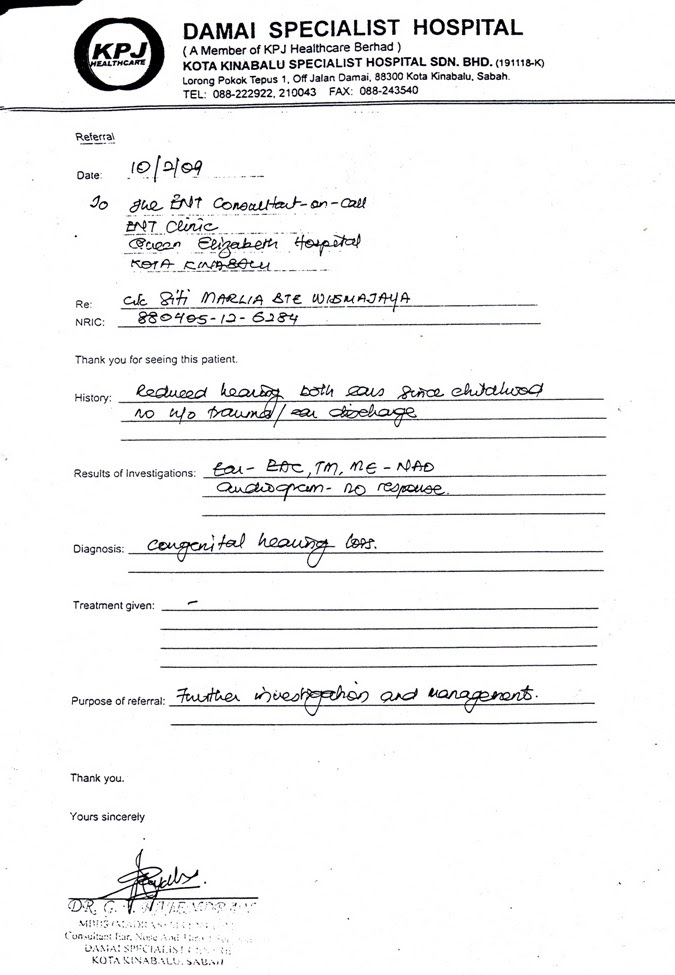 KPJ
HEALTHCARE
DAMAI SPECIALIST HOSPITAL
( A Member of KPJ Healthcare Berhad )
KOTA KINABALU SPECIALIST HOSPITAL SDN. BHD. (191118-K)
Lorong Pokok Tepus 1, Off Jalan Damai, 88300 Kota Kinabalu, Sabah.
TEL: 088-222922, 210043 FAX: 088-243540
Referral
Date: 10/2/09
To The ENT Consultant-on-call
ENT Clinic
Queen Elizabeth Hospital
KOTA KINABALU
Re: Cik Siti MARLIA BTE WISMAJAYA
NRIC: 880405-12-6284
Thank you for seeing this patient.
History: Reduced hearing both ears since childhood
no h/o trauma/ ear discharge
Results of Investigations: Ear - EAC, TM, ME - NAD
audiogram - no response.
Diagnosis: Congenital hearing loss.
Treatment given: -
Purpose of referral: Further investigation and management.
Thank you.
Yours sincerely
DR. G.
Consultant Ear, Nose And
DAMAI SPECIALIST
KOTA KINABALU, SABAH